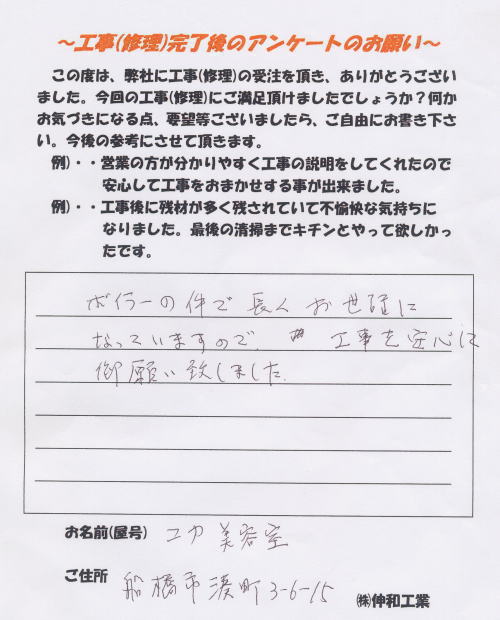 ～工事(修理)完了後のアンケートのお願い～
この度は、弊社に工事(修理)の受注を頂き、ありがとうござい
ました。今回の工事(修理)にご満足頂けましたでしょうか？何か
お気づきになる点、要望等ございましたら、ご自由にお書き下さ
い。今後の参考にさせて頂きます。
例)・・営業の方が分かりやすく工事の説明をしてくれたので
安心して工事をおまかせする事が出来ました。
例)・・工事後に残材が多く残されていて不愉快な気持ちに
なりました。最後の清掃までキチンとやって欲しかっ
たです。
ボイラーの件で長くお世話に
なっていますので、工事を安心に
御願い致しました。
お名前(屋号) ユカ美容室
ご住所 船橋市湊町3-6-15
㈱伸和工業